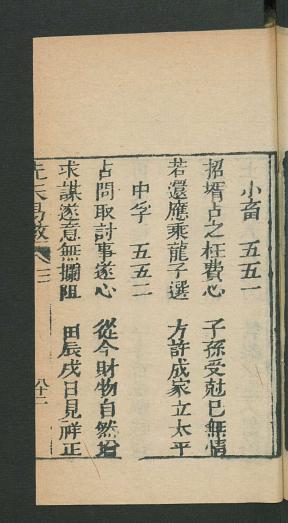 小畜 五五一
招壻占之枉費心 子孫受尅已無情
若還應乘龍子選 方許成家立太平
中孚 五五二
占問取討事遂心 從今財物自然增
求謀遂意無攔阻 田辰戌日見祥正
先天易數 卷三 全二